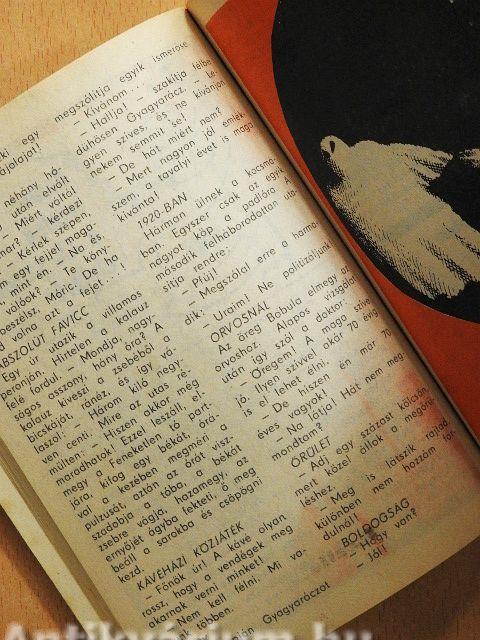 ki egy
ajolaját!
néhány hó-
után elvált
Miért váltál
mar? – kérdezi
– Kérlek szépen,
m egy fejjel maga-
, mint én. – Na és
válóok? – Te köny-
beszélsz, Móric. De ha
d volna azt a fejet...!
ABSZOLUT FAVICC
Egy úr utazik a villamos
peronján. Hirtelen a kalauz
felé fordul: – Mondja, nagy-
ságos asszony, hány óra? A
kalauz kiveszi a zsebéből a
bicskáját, ránéz, és így vá-
laszol: – Három kiló negy-
ven centi. – Mire az utas ré-
mülten: – Hiszen akkor még
maradhatok! Ezzel leszáll, el-
megy a Feneketlen tó part-
jára, kifog egy békát, órá-
val a kezében megméri a
pulzusát, aztán az órát visz-
szadobja a tóba, a békát
zsebre vágja, hazamegy, az
ernyőjét ágyba fekteti, ő meg
beáll a sarokba és csöpögni
kezd.
KÁVÉHÁZI KÖZJÁTÉK
– Főnök úr! A kávé olyan
rossz, hogy a vendégek meg
akarnak verni minket!
– Nem kell félni. Mi va-
k többen.
Gyagyaróczot
megszólítja egyik ismerőse
– Kívánom...
– Hallja! – szakítja félbe
dühösen Gyagyarácz, – le-
gyen szíves, és ne kívánjon
nekem semmit se!
– De hát miért nem?
– Mert nagyon jól emlék-
szem, a tavalyi évet is maga
kívánta!
1920-BAN
Hárman ülnek a kocsma-
ban. Egyszer csak az egyik
nagyot köp a padlóra. A
második felháborodottan uta-
sítja rendre:
– Pfuj!
– Megszólal erre a harma-
dik:
– Uraim! Ne politizáljunk!
ORVOSNÁL
Az öreg Bobula elmegy az
orvoshoz. Alapos vizsgálat
után így szól a doktor:
– Öregem! A maga szíve
jó. Ilyen szívvel akár 70 évig
is el lehet élni.
– De hiszen én már 70
éves vagyok!
– Na látja! Hát nem meg-
mondtam?
ŐRÜLET
– Adj egy százast kölcsön,
mert közel állok a megőrü-
léshez.
– Meg is látszik rajtad,
különben nem hozzám for-
dulnál!
BOLDOGSÁG
– Hogy van?
– Jól!